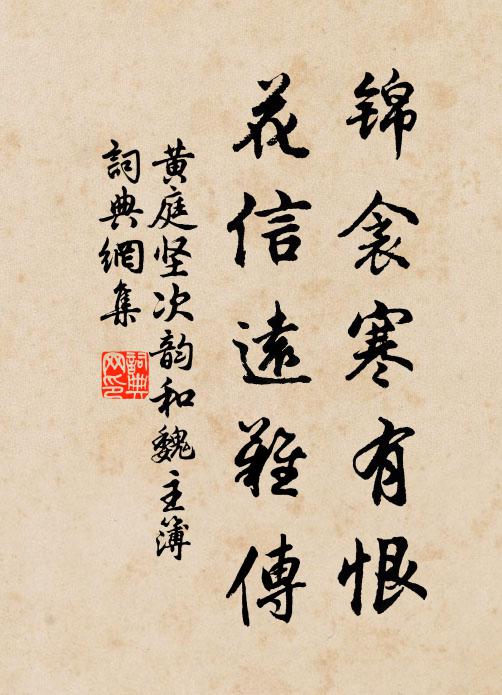 锦衾寒有恨
花信遠難傳
黄庭坚次韵和魏主簿
詞典網集
詞典網印